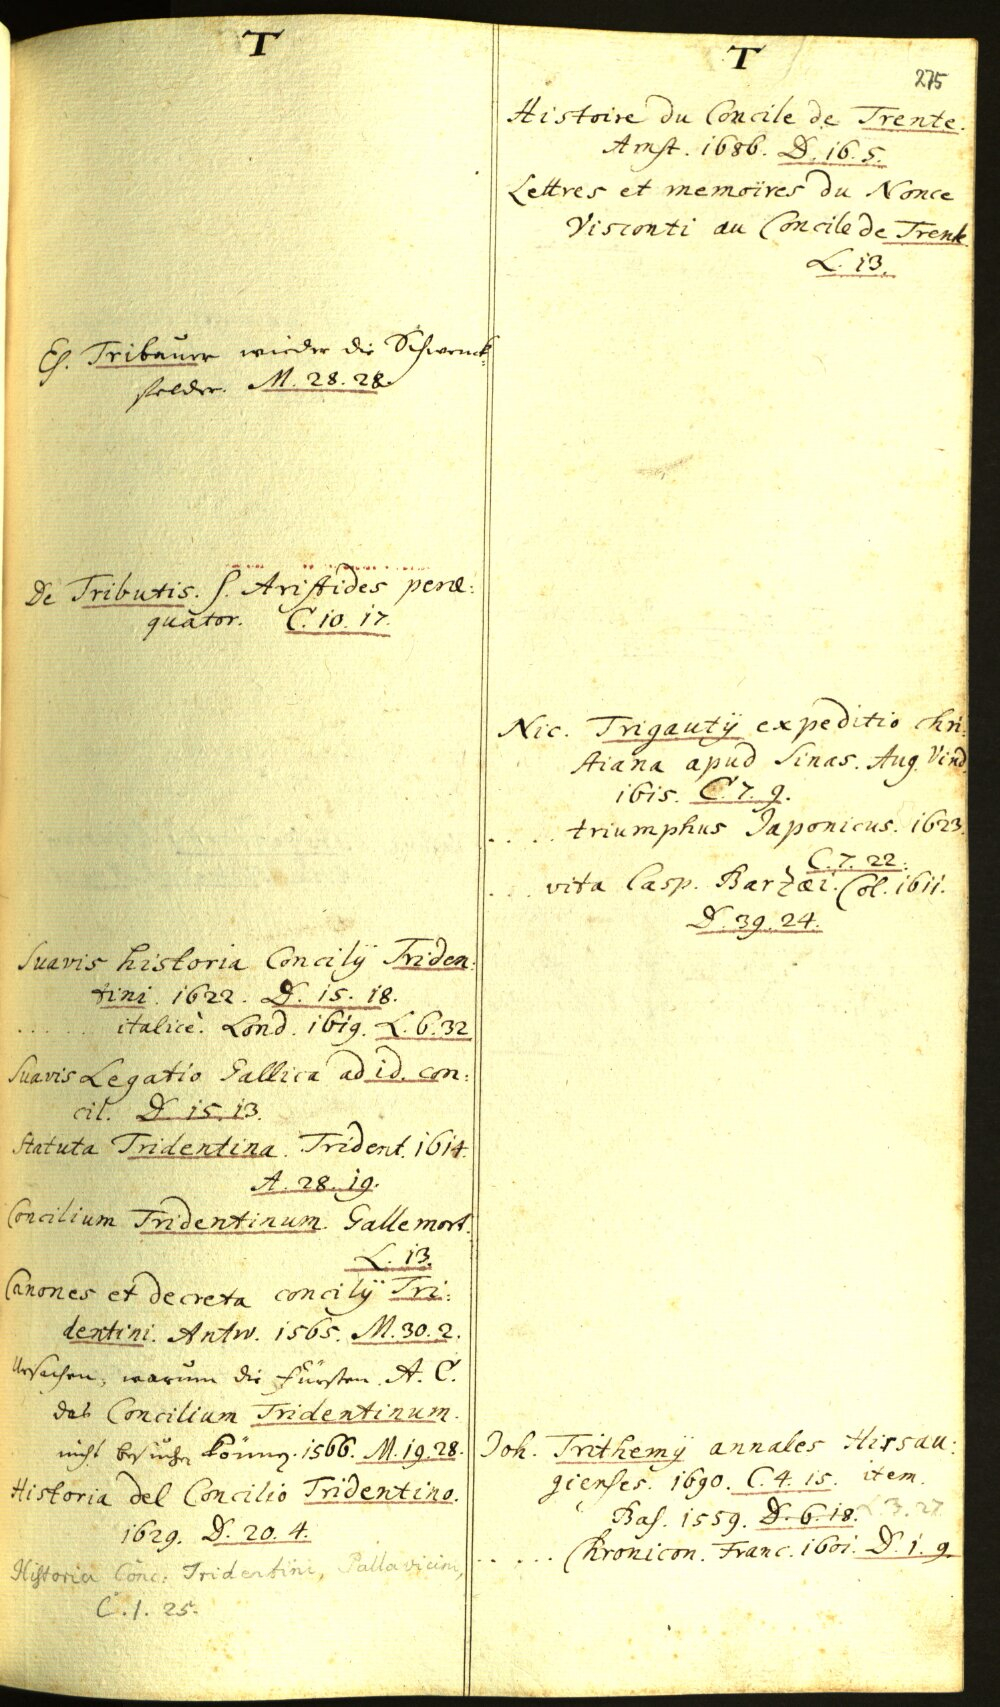 T
Es. Tribauer wieder die Schwenck:
felder. M. 28. 28.
De Tributis. s. Aristides peræ:
quator. C. 10. 17.
Suavis historia Concilÿ Triden:
tini. 1622. D. 15. 18.
. . . . . italicè. Lond. 1619. L. 6. 32
Suavis Legatio Gallica ad id. con:
cil. D. 15. 13.
Statuta Tridentina. Trident. 1614.
A. 28. 19.
Concilium Tridentinum. Gallemort.
L. 13.
Canones et decreta concilÿ Tri:
dentini. Antw. 1565. M. 30. 2.
Ursachen, warum die Fürsten A. C.
das Concilium Tridentinum.
nicht besuchen können. 1566. M. 19. 28.
Historia del Concilio Tridentino.
1629. D. 20. 4.
Historia Conc: Tridentini, Pallavicini,
C. 1. 25.
T
275
Histoire du Concile de Trente.
Amst. 1686. D. 16. 5.
Lettres et memoires du Nonce
Visconti au Concile de Trente.
L. 13.
Nic. Trigautÿ expeditio chri:
stiana apud Sinas. Aug. Vind.
1615. C. 7. 9.
. . . . triumphus Japonicus. 1623.
C. 7. 22.
. . . vita Casp. Barzæi. Col. 1611.
D. 39. 24.
Joh. Trithemÿ annales Hirsau:
gienses. 1690. C. 4. 15. item.
Bas. 1559. D. 6. 18. 3. 27
. . . . . Chronicon. Franc. 1601. D. 1. 9.